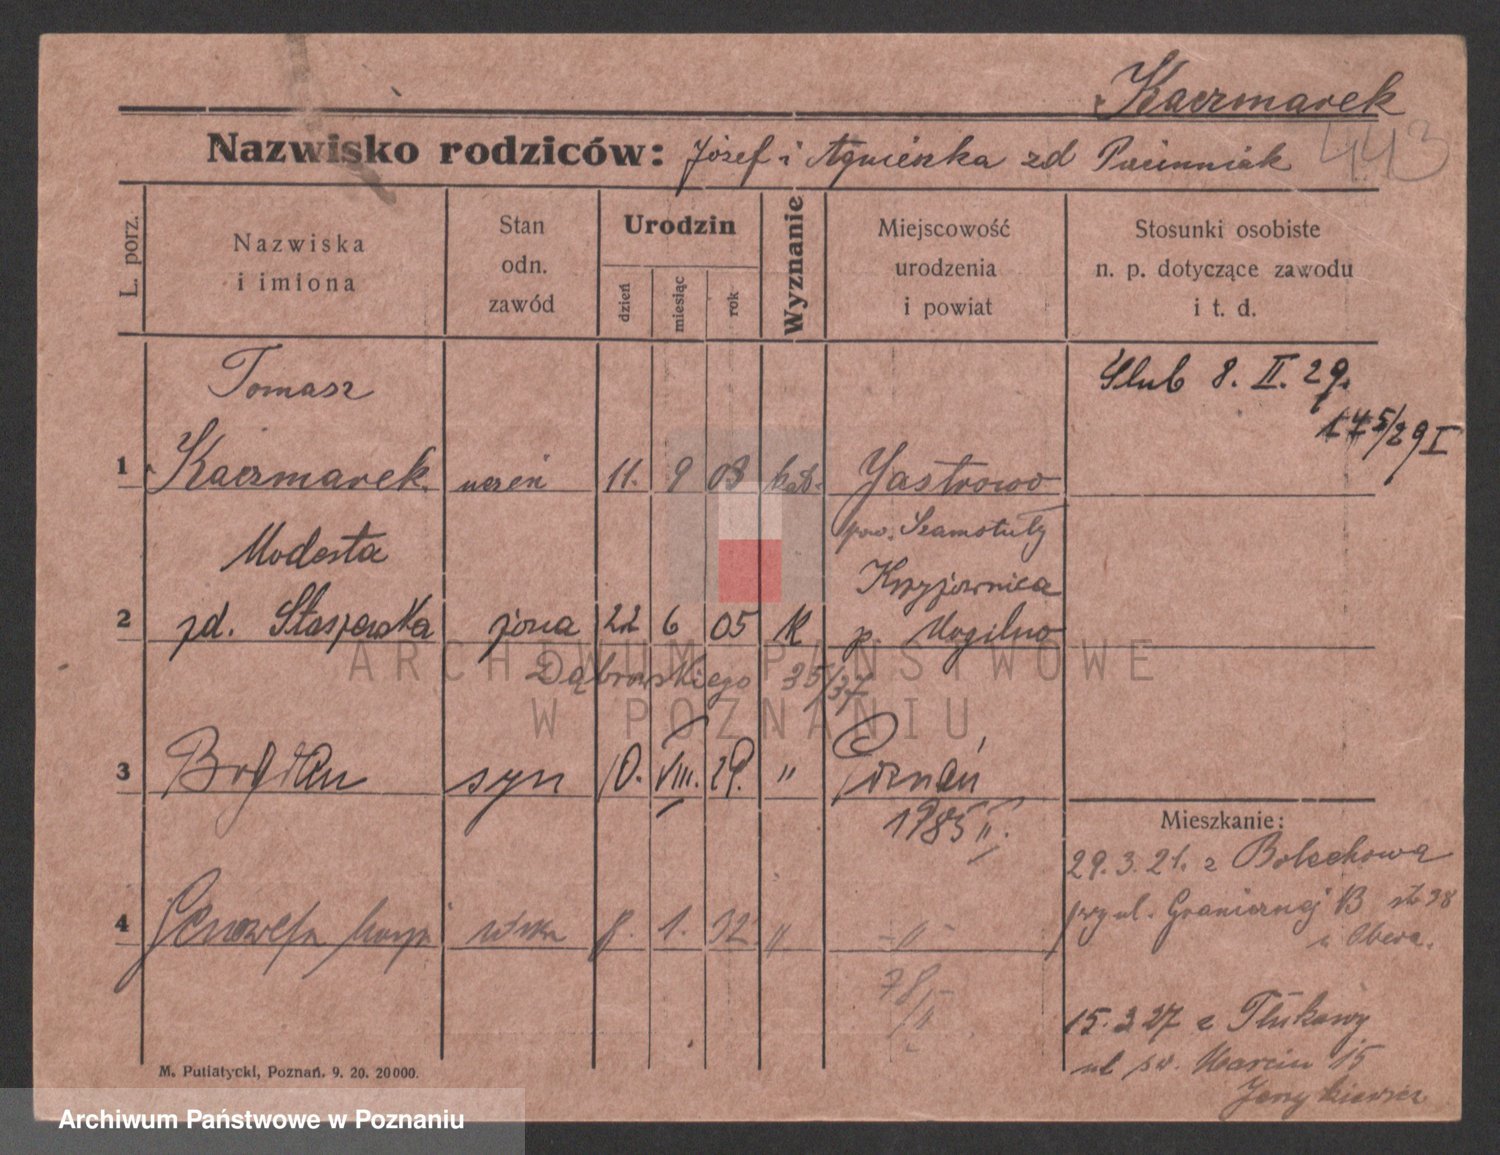 Kaczmarek
443
Nazwisko rodziców: Józef i Agnieszka zd
L. porz.
Nazwiska i imiona
Stan odn. zawód
Urodzin
dzień
miesiąc
rok
Wyznanie
Miejscowość urodzenia i powiat
Stosunki osobiste n. p. dotyczące zawodu i t. d.
Tomasz
Ślub 8. II. 29.
175/29 I
1 Kaczmarek uczeń 11. 9 08 kat. Jastrowo
pow. Szamotuły
Modesta
2 zd. Staszewska żona 22 6 05 K p. Mogilno
Dąbrowskiego 35/37
3 Bogdan syn 10. VIII. 29. " Poznań
1985 II.
Mieszkanie:
29.3.21. z Bolechowa
przy ul. Granicznej
u
4 Genowefa 8. 1. 32 " -"-
78/II
15.3 27 z
ul św. Marcin 15
M. Putiatycki, Poznań. 9. 20. 20000.
ARCHIWUM PAŃSTWOWE
W POZNANIU
Archiwum Państwowe w Poznaniu